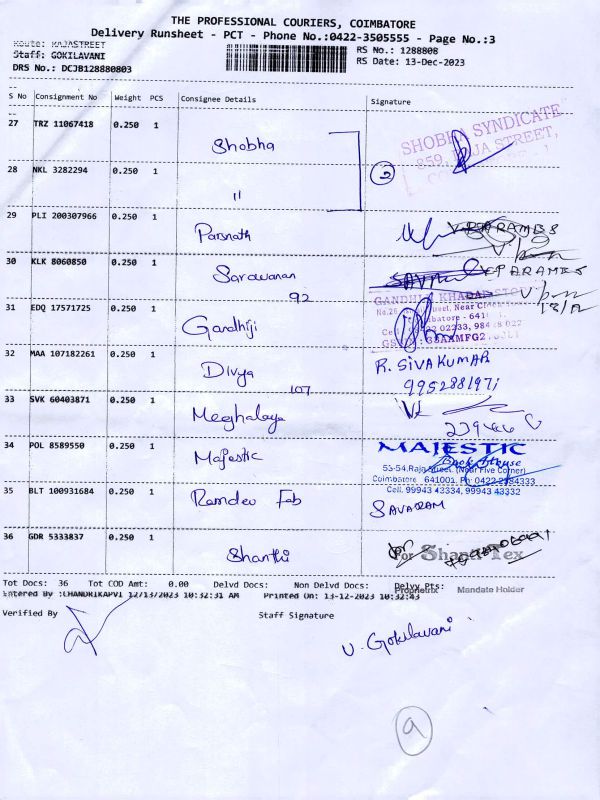 THE PROFESSIONAL COURIERS, COIMBATORE
Delivery Runsheet - PCT - Phone No.:0422-3505555 - Page No.:3
Route: RAJASTREET
Staff: GOKILAVANI
RS No.: 1288808
DRS No.: DCJB128880803
RS Date: 13-Dec-2023
S No Consignment No Weight PCS Consignee Details Signature
27 TRZ 11067418 0.250 1 Shobha
SHOBHA SYNDICATE
859, RAJA STREET,
28 NKL 3282294 0.250 1 " 2
29 PLI 200307966 0.250 1 Parsnath
30 KLK 8060850 0.250 1 Sarawanan
92
31 EDQ 17571725 0.250 1 Gandhiji
GANDHIJI KHADAR STORE
32 MAA 107182261 0.250 1 Divya R. SIVAKUMAR
107 9952881971
33 SVK 60403871 0.250 1 Meghalaya
34 POL 8589550 0.250 1 Majestic MAJESTIC
Book House
53-54, Raja Street. (Near Five Corner)
Coimbatore 641001. Ph: 0422-2394333
Cell. 99943 43334, 99943 43332
35 BLT 100931684 0.250 1 Ramdev Fab SAVARAM
36 GDR 5333837 0.250 1 Shanthi For Shanthi Tex
Tot Docs: 36 Tot COD Amt: 0.00 Delvd Docs: Non Delvd Docs: Delvy Pts:
Proprietrix Mandate Holder
Entered By :CHANDRIKAPVI 12/13/2023 10:32:31 AM Printed On: 13-12-2023 10:32:43
Verified By Staff Signature
V. Gokilavani
9